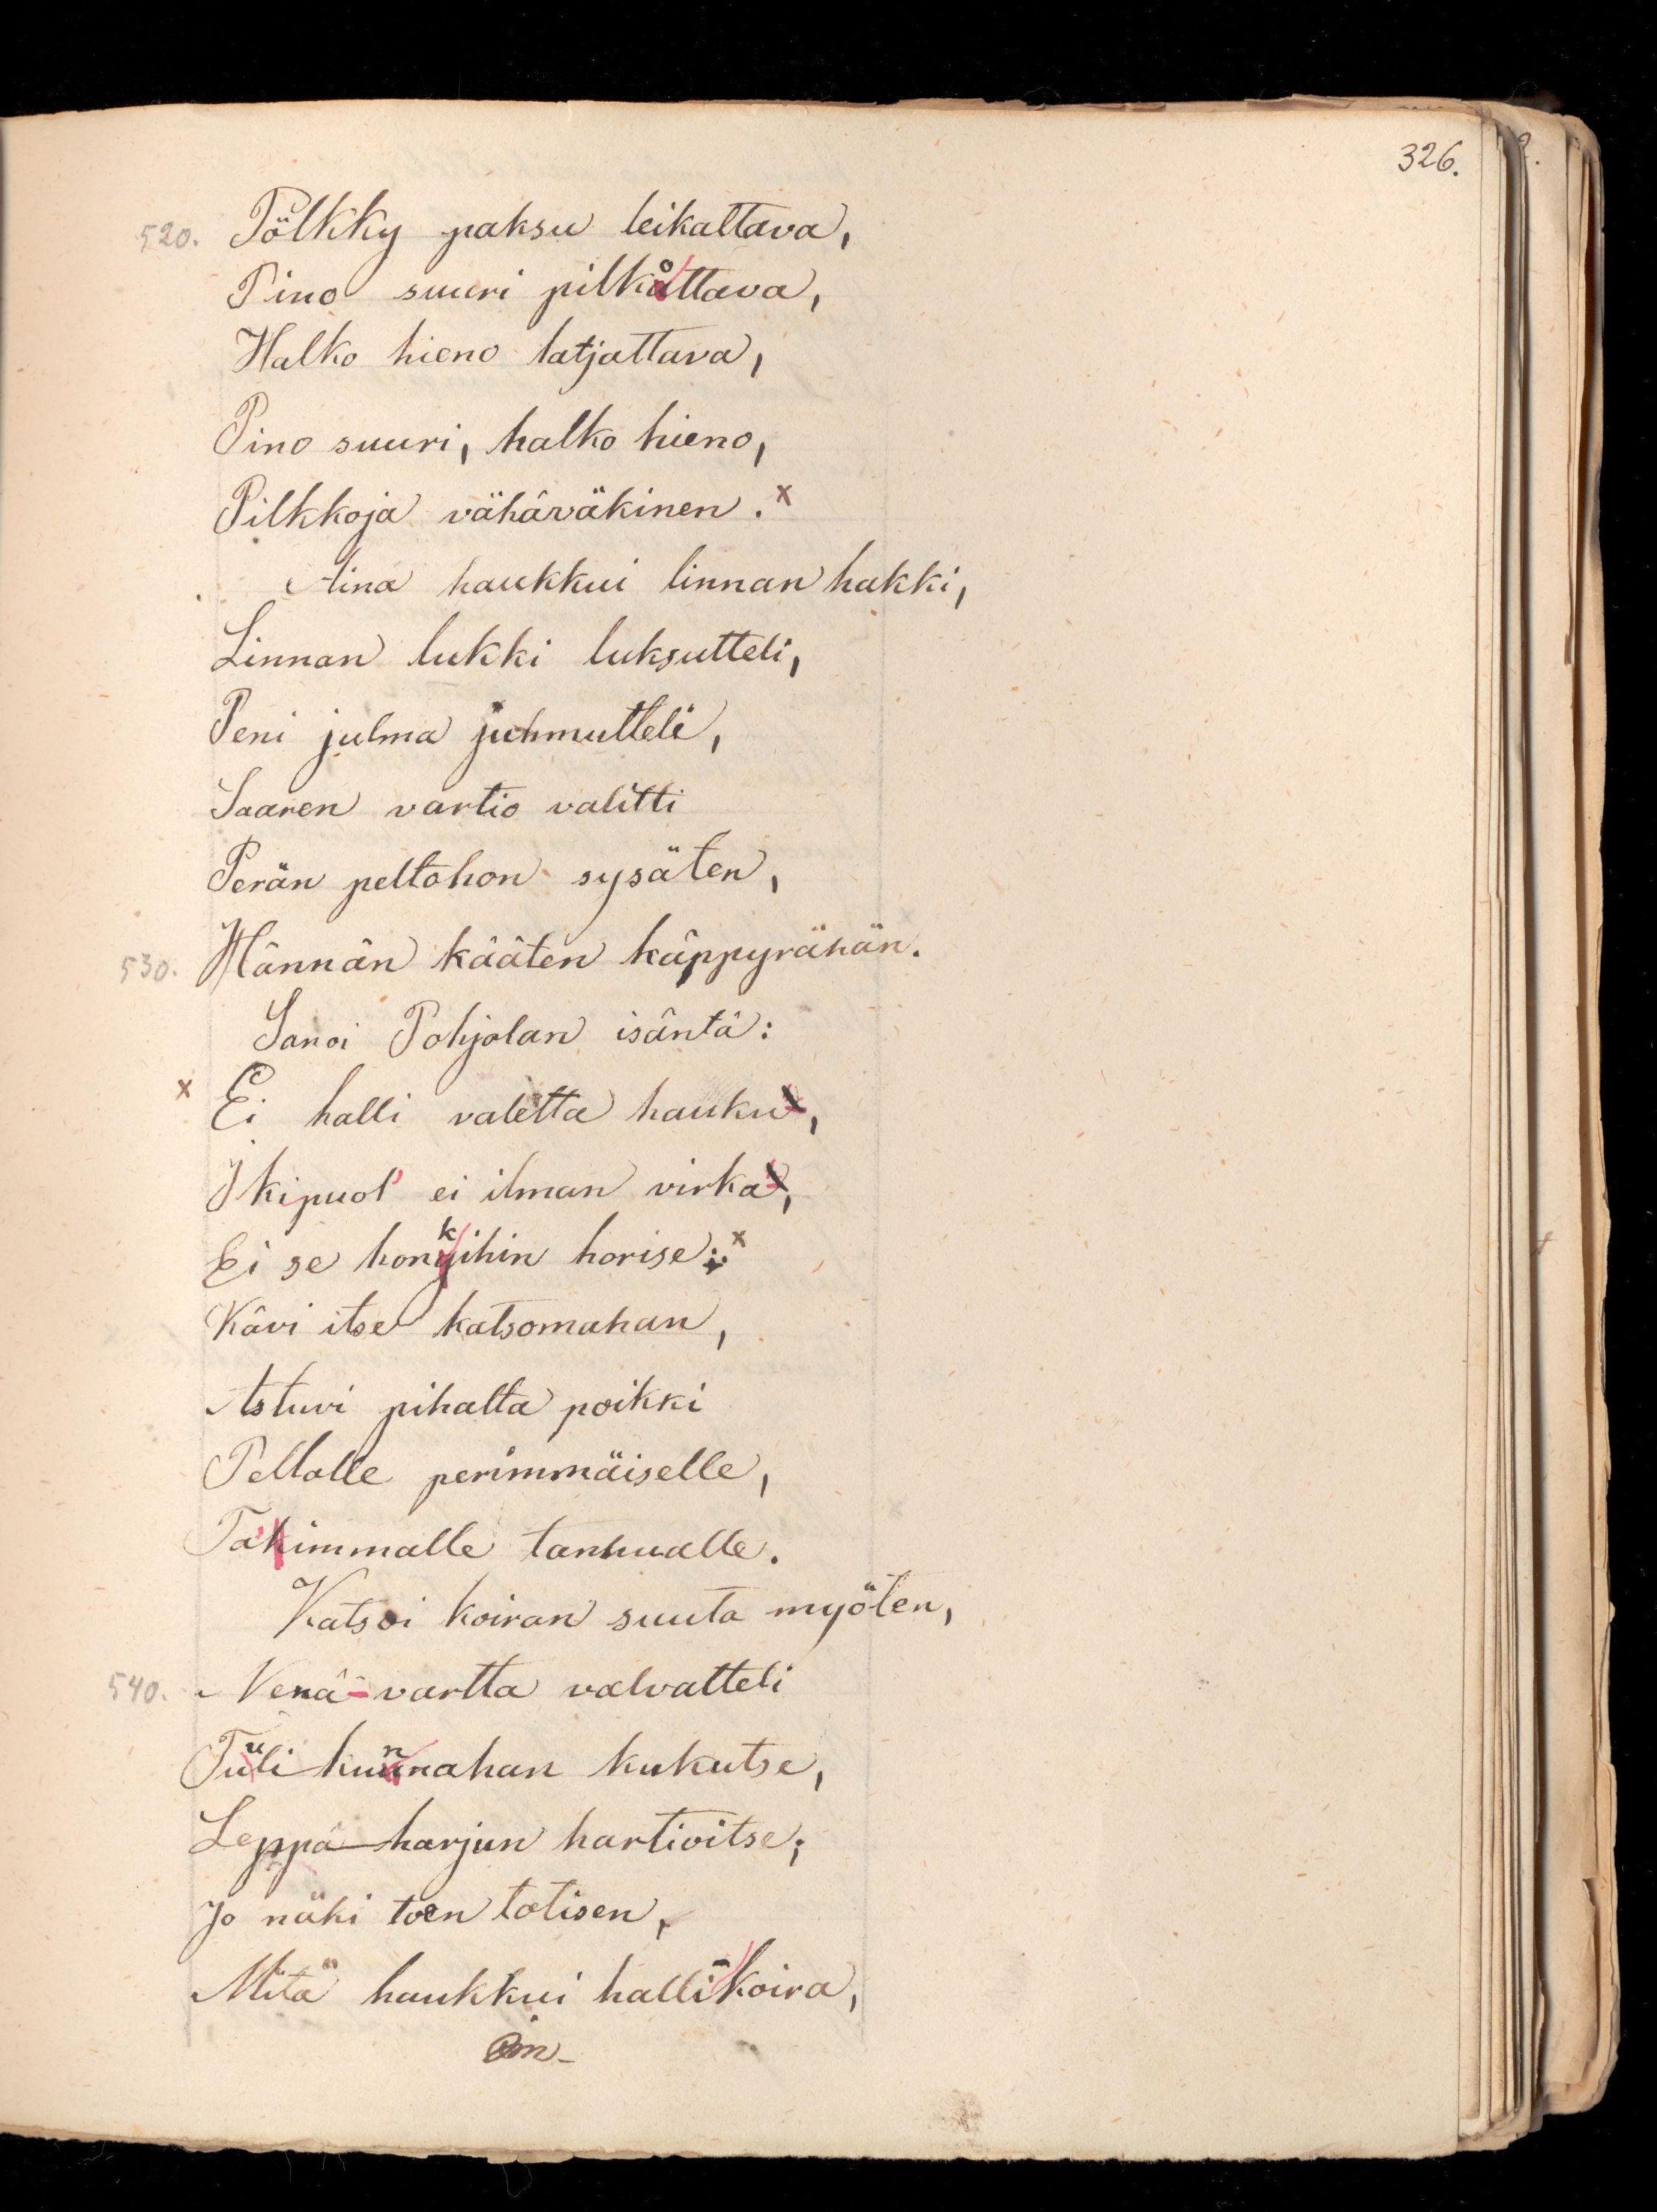 326.
520. Pölkky paksu leikattava,
Pino suuri pilkottava,
Halko hieno latjattava,
Pino suuri, halko hieno,
Pilkkoja vähäväkinen. x
Aina haukkui linnan hakki,
Linnan lukki luksutteli,
Peni julma juhmutteli,
Saaren vartio valitti
Perän peltohon sysäten,
530. Hännän kääten käppyrähän.
Sanoi Pohjolan isäntä:
x Ei halli valetta hauku,
Ikipuol' ei ilman virka,
Ei se honkihin horise: x
Kävi itse katsomahan,
Astuvi pihalta poikki
Pellolle perimmäiselle,
Ta'immalle tanhualle.
Katsoi koiran suuta myöten,
540. Nenä-vartta valvatteli
Tuuli kunnahan kukutse,
Leppä-harjun hartioitse;
Jo näki toen totisen,
Mitä haukkui halli-koira,